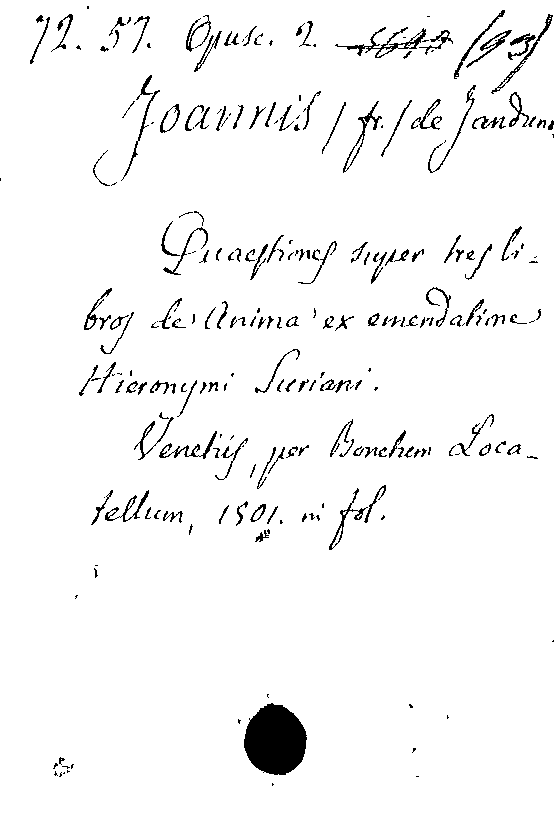 72. 57. Opusc. 2. (93)
Joannis /fr./ de Janduno
Quaestiones super tres li-
bros de Anima ex emendatione
Hieronymi Suriani.
Venetiis, per Bonetum Loca-
tellum, 1501. in fol.